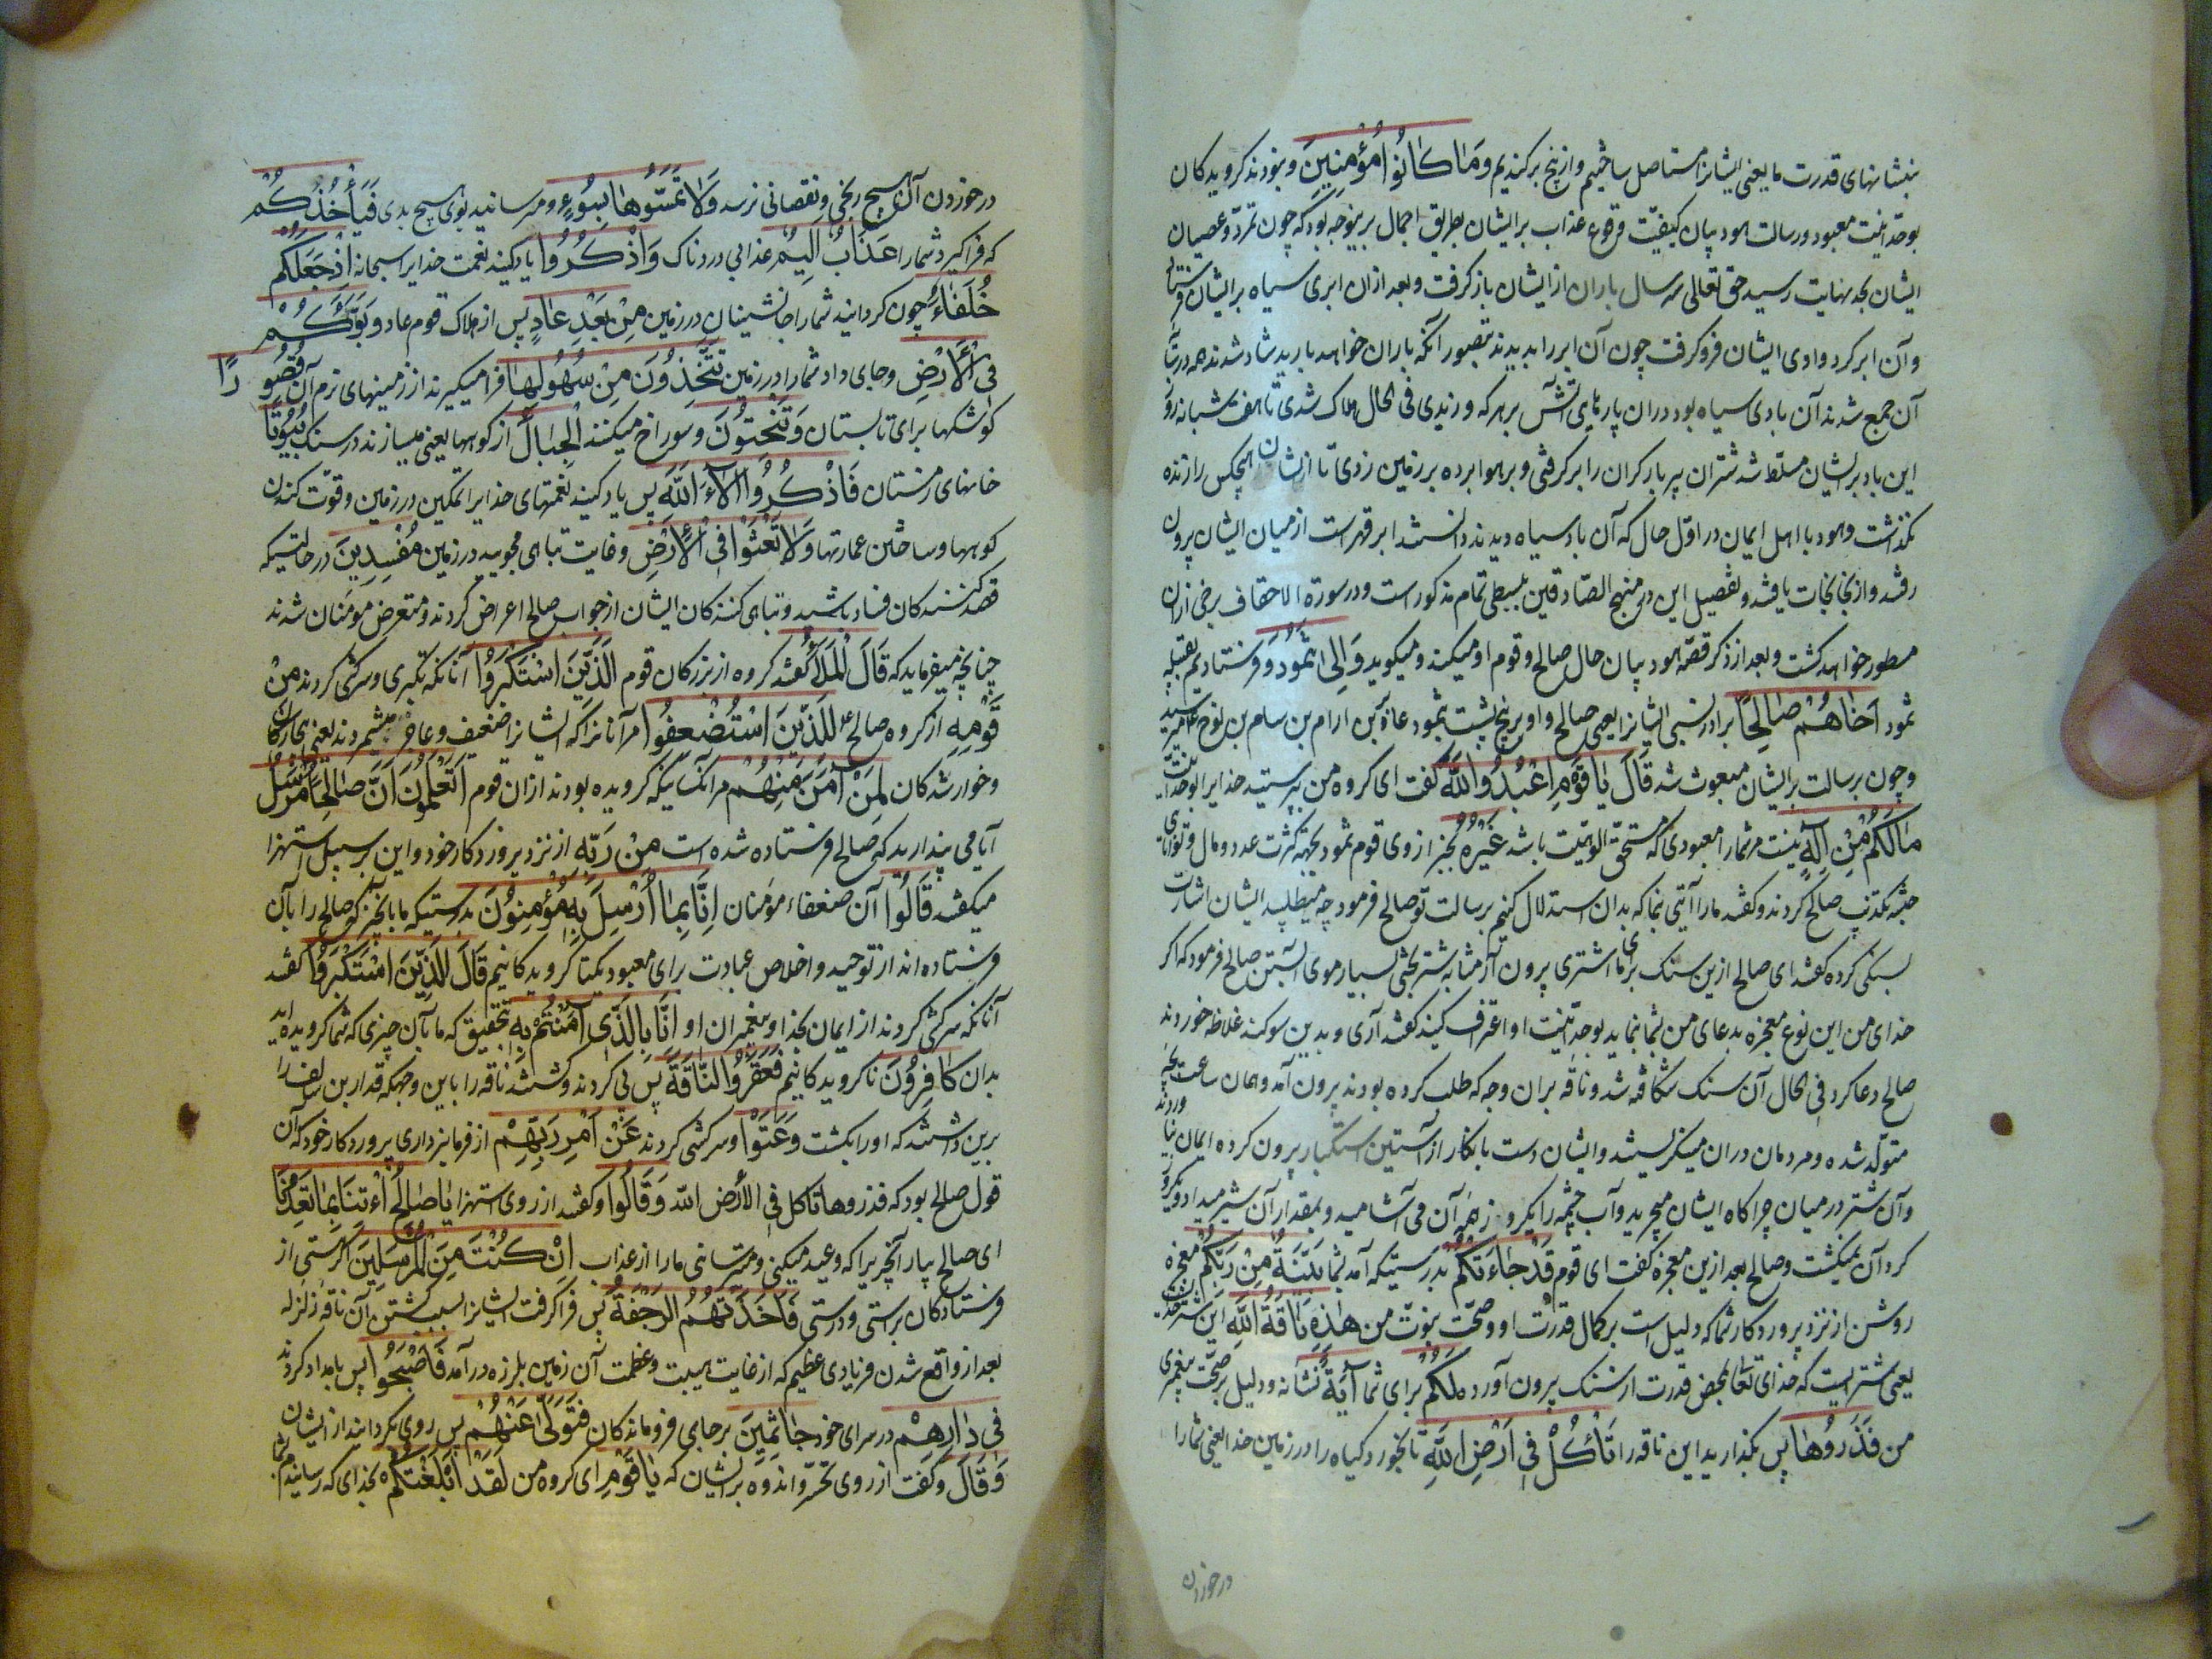 بنشانهای قدرت ما یعنی ایشانرا مستاصل ساختیم و از بیخ برکندیم وَمَا كَانُوا مُؤْمِنِينَ و نبودند کرویدکان
بوحدانیت معبود و رسالت هود بیان کیفیّت وقوع عذاب بر ایشان بطریق اجمال برینوجه بود که چون تمرّد و عصیان
ایشان بحد نهایت رسید حق تعالی سه سال باران از ایشان باز کرفت و بعد ازان ابری سیاه بر ایشان فرستاد
و آن ابر کرد وادی ایشان فرو کرفت چون آن ابر را بدیدند بتصور آنکه باران خواهد بارید شاد شدند همه در
آن جمع شدند آن بادی سیاه بود دران پارهای آتش بر هر که وزیدی فی الحال هلاک شدی تا هفت شبانه روز
این باد بر ایشان مسلّط شد شتران پر بار کران را برکرفتی و بر هوا برده بر زمین زدی تا از ایشان هیچکس را زنده
نکذاشت و هود با اهل ایمان در اوّل حال که آن باد سیاه دیدند دانستند ابر قهرست از میان ایشان بیرون
رفتند و ازان نجات یافتند و تفصیل این در منهج الصّادقین ببسطی تمام مذکور است و در سورة الاحقاف برخی ازان
مسطور خواهد کشت و بعد از ذکر قصّه هود بیان حال صالح و قوم او میکند و میکوید وَإِلَى ثَمُودَ و فرستادیم بقبیله
ثمود أَخَاهُمْ صَالِحًا برادر نسبی ایشانرا یعنی صالح و او به پنج پشت بثمود عاد بن ارام بن سام بن نوح میرسید
و چون برسالت بر ایشان مبعوث شد قَالَ يَا قَوْمِ اعْبُدُوا اللَّهَ کفت ای کروه من بپرستید خدایرا بوحدانیت
مَا لَكُمْ مِنْ إِلَهٍ نیست مر شما را معبودی که مستحق الوهیّت باشد غَيْرُهُ بجز از وی قوم ثمود بجهة کثرت عدد و مال و توانائی
جثه تکذیب صالح کردند و کفتند ما را آیتی بنما که بدان استدلال کنیم برسالت تو صالح فرمود چه میطلبید ایشان اشارت
بسنکی کرده کفتند ای صالح ازین سنک برای ما اشتری بیرون آر مشابه شتر بختی بسیار موی آبستن صالح فرمود که اکر
خدای من این نوع معجزه بدعای من بشما بنماید بوحدانیت او اعتراف کنید کفتند آری و بدین سوکند غلاظ خوردند
صالح دعا کرد فی الحال آن سنک شکافته شد و ناقه بران وجه که طلب کرده بودند بیرون آمد و همان ساعت بچه
متولّد شده و مردمان دران مینکریستند و ایشان دست بانکار از آستین استکبار بیرون کرده ایمان نیاوردند
و آن شتر در میان چراکاه ایشان میچرید و آب چشمه را یکروز همه آن می آشامید و بمقدار آن شیر میداد و یکروز
کرد آن نمیکشت و صالح بعد ازین معجزه کفت ای قوم قَدْ جَاءَتْكُمْ بدرستیکه آمد بشما بَيِّنَةٌ مِنْ رَبِّكُمْ معجزه
روشن از نزد پروردکار شما که دلیل است بر کمال قدرت او و صحّت نبوّت من هَذِهِ نَاقَةُ اللَّهِ این شتر خداست
یعنی شتریست که خدای تعالی بمحض قدرت از سنک بیرون آورده لَكُمْ برای شما آيَةً نشانه و دلیل بر صحّت پیغمبری
من فَذَرُوهَا پس بکذارید این ناقه را تَأْكُلْ فِي أَرْضِ اللَّهِ تا بخورد کیاه را در زمین خدا یعنی شما را
در خوردن
در خوردن آن هیچ رنجی و نقصانی نرسد وَلَا تَمَسُّوهَا بِسُوءٍ و مرسانید بوی هیچ بدی فَيَأْخُذَكُمْ
که فرا کیرد شما را عَذَابٌ أَلِيمٌ عذابی دردناک وَاذْكُرُوا یاد کنید نعمت خدایرا سبحانه إِذْ جَعَلَكُمْ
خُلَفَاءَ چون کردانید شما را جانشینان در زمین مِنْ بَعْدِ عَادٍ پس از هلاک قوم عاد وَبَوَّأَكُمْ
فِي الْأَرْضِ و جای داد شما را در زمین تَتَّخِذُونَ مِنْ سُهُولِهَا فرا میکیرند از زمینهای نرم آن قُصُورًا
کوشکها برای تابستان وَتَنْحِتُونَ و سوراخ میکنند الْجِبَالَ از کوهها یعنی میسازند در سنک بُيُوتًا
خانهای زمستان فَاذْكُرُوا آلَاءَ اللَّهِ پس یاد کنید نعمتهای خدایرا تمکین در زمین و قوّت کندن
کوهها و ساختن عمارتها وَلَا تَعْثَوْا فِي الْأَرْضِ و غایت تباهی مجویید در زمین مُفْسِدِينَ در حالتیکه
قصد کنندکان فساد باشید و تباهی کنندکان ایشان از جواب صالح اعراض کردند و متعرض مؤمنان شدند
چنانچه میفرماید که قَالَ الْمَلَأُ کفتند کروه از بزرکان قوم الَّذِينَ اسْتَكْبَرُوا آنانکه تکبری و سرکشی کردند مِنْ
قَوْمِهِ از کروه صالح لِلَّذِينَ اسْتُضْعِفُوا مر آنانرا که ایشانرا ضعیف و عاجز میشمردند یعنی بیچارکان
و خوار شدکان لِمَنْ آمَنَ مِنْهُمْ مر آنکسانیکه کرویده بودند ازان قوم أَتَعْلَمُونَ أَنَّ صَالِحًا مُرْسَلٌ
آیا می پندارید که صالح فرستاده شده است مِنْ رَبِّهِ از نزد پروردکار خود و این بر سبیل استهزا
میکفتند قَالُوا آن ضعفاء مؤمنان إِنَّا بِمَا أُرْسِلَ بِهِ مُؤْمِنُونَ بدرستیکه ما بآنچیز که صالح را بآن
فرستاده اند از توحید و اخلاص عبادت برای معبود یکتا کرویدکانیم قَالَ الَّذِينَ اسْتَكْبَرُوا کفتند
آنانکه سرکشی کردند از ایمان بخدا و پیغمبران او إِنَّا بِالَّذِي آمَنْتُمْ بِهِ بتحقیق که ما بآن چیزی که شما کرویده اید
بدان كَافِرُونَ ناکرویدکانیم فَعَقَرُوا النَّاقَةَ پس پی کردند و کشتند ناقه را باین وجهکه قدار بن سالف را
برین داشتند که اورا بکشت وَعَتَوْا و سرکشی کردند عَنْ أَمْرِ رَبِّهِمْ از فرمانبرداری پروردکار خود که آن
قول صالح بود که فذروها تاکل فی الأرض الله وَقَالُوا و کفتند از روی استهزا يَا صَالِحُ ائْتِنَا بِمَا تَعِدُنَا
ای صالح بیار آنچیزیرا که وعید میکنی و میترسانی ما را از عذاب إِنْ كُنْتَ مِنَ الْمُرْسَلِينَ اکر هستی از
فرستادکان براستی و درستی فَأَخَذَتْهُمُ الرَّجْفَةُ پس فرا کرفت ایشانرا بسبب کشتن آن ناقه زلزله
بعد از واقع شدن فریادی عظیم که از غایت هیبت و عظمت آن زمین بلرزه در آمد فَأَصْبَحُوا پس بامداد کردند
فِي دَارِهِمْ در سرای خود جَاثِمِينَ بر جای فرو ماندکان فَتَوَلَّى عَنْهُمْ پس روی بکردانید از ایشان
وَقَالَ و کفت از روی تحسّر و اندوه بر ایشان که يَا قَوْمِ ای کروه من لَقَدْ أَبْلَغْتُكُمْ بخدای که رسانیدم شما را